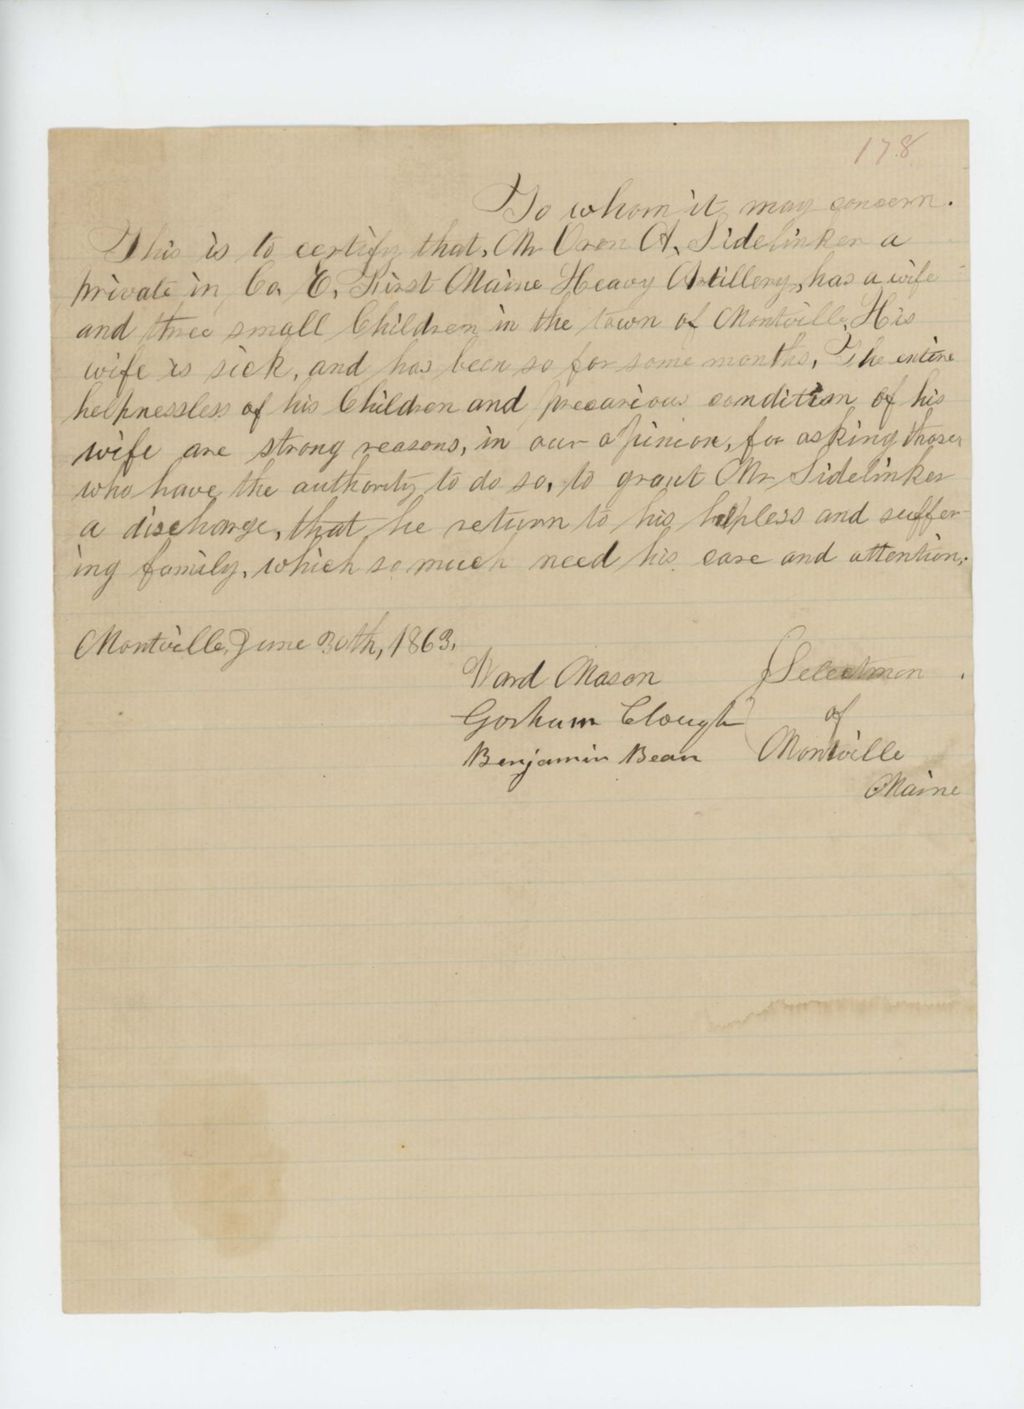 178
To whom it may concern.
This is to certify that, Mr Oron A. Sidelinker a
private in Co. E. First Maine Heavy Artillery, has a wife
and three small Children in the town of Montville. His
wife is sick, and has been so for some months. The entire
helpnessless of his Children and precarious condition of his
wife are strong reasons, in our opinion, for asking those
who have the authority to do so, to grant Mr Sidelinker
a discharge, that he return to his helpless and suffer-
ing family, which so much need his care and attention.
Montville, June 30th, 1863.
Ward Mason } Selectmen
Gorham Clough } of
Benjamin Bean } Montville
Maine